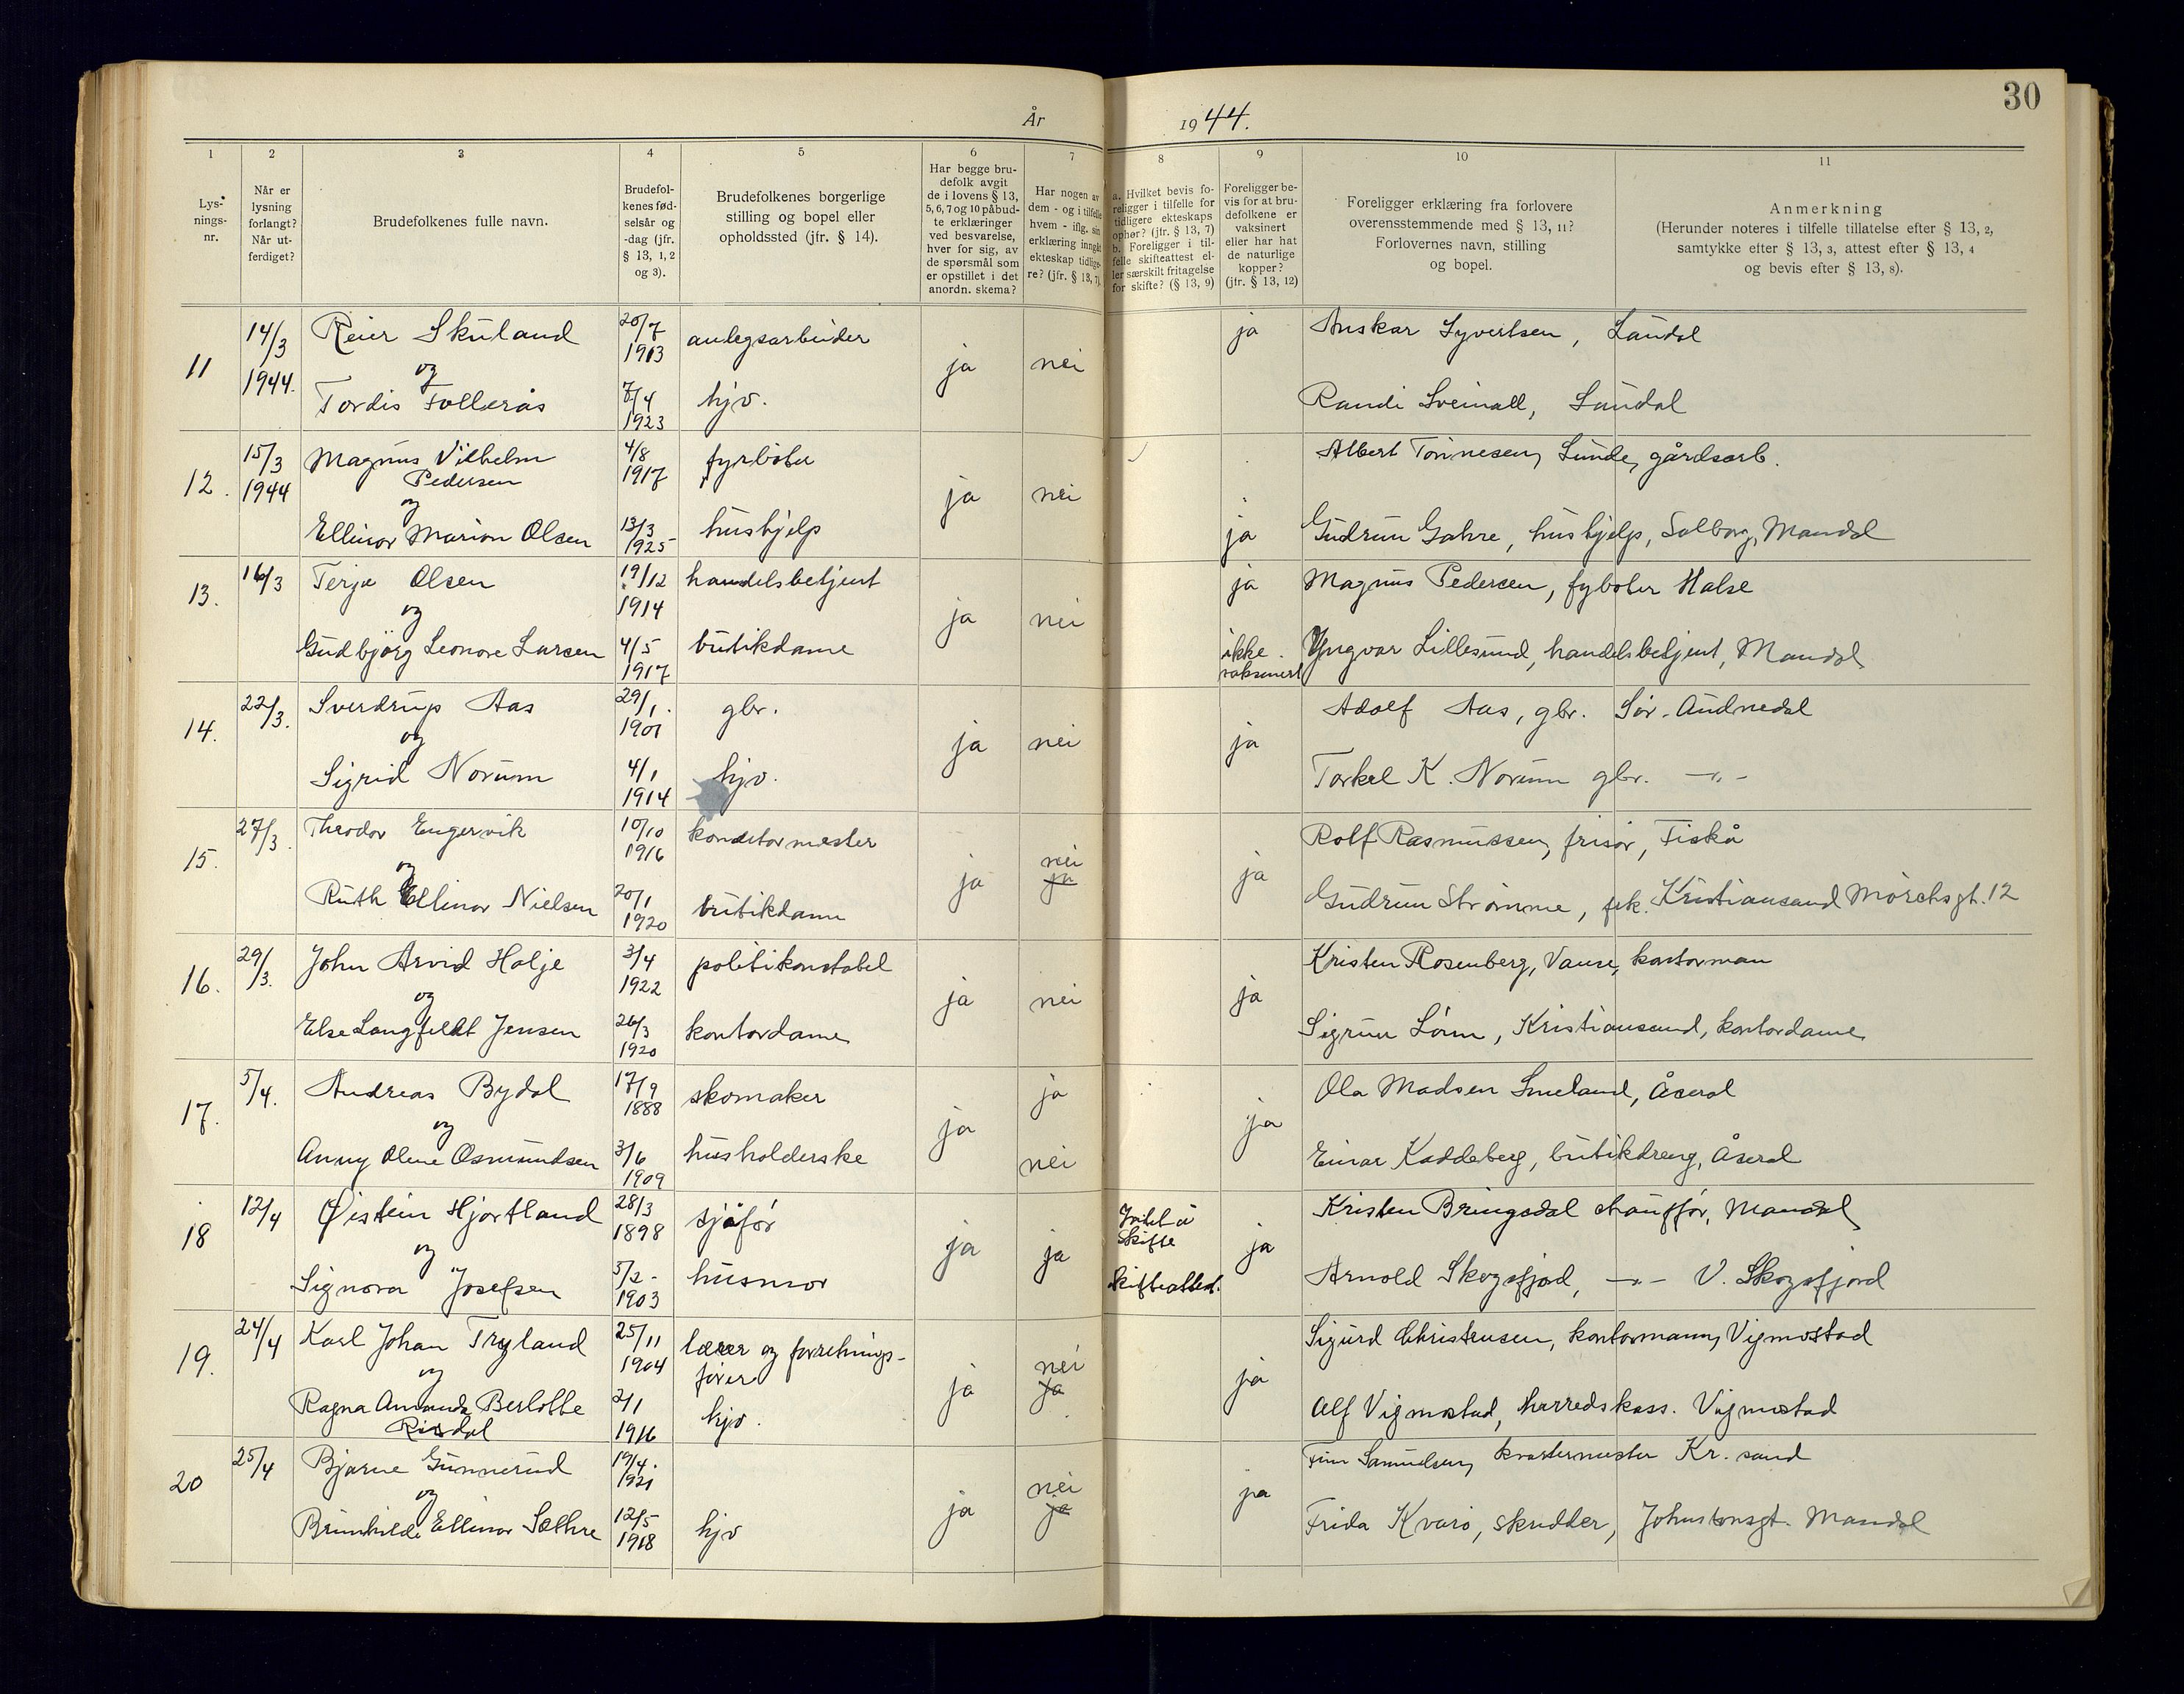 30
År 1944.
1
Lys-
nings-
nr.
2
Når er
lysning
forlangt?
Når ut-
ferdiget?
3
Brudefolkenes fulle navn.
4
Brudefol-
kenes fød-
selsår og
-dag (jfr.
§ 13, 1, 2
og 3).
5
Brudefolkenes borgerlige
stilling og bopel eller
opholdssted (jfr. § 14).
6
Har begge bru-
defolk avgit
de i lovens § 13,
5, 6, 7 og 10 påbud-
te erklæringer
ved besvarelse,
hver for sig, av
de spørsmål som
er opstillet i det
anordn. skema?
7
Har nogen av
dem - og i tilfelle
hvem - iflg. sin
erklæring inngått
ekteskap tidlige-
re? (jfr. § 13, 7).
8
a. Hvilket bevis fo-
religger i tilfelle for
tidligere ekteskaps
ophør? (jfr. § 13, 7)
b. Foreligger i til-
felle skifteattest el-
ler særskilt fritagelse
for skifte? (§ 13, 9)
9
Foreligger be-
vis for at bru-
defolkene er
vaksinert
eller har hat
de naturlige
kopper?
(jfr. § 13, 12)
10
Foreligger erklæring fra forlovere
overensstemmende med § 13, 11?
Forlovernes navn, stilling
og bopel.
11
Anmerkning
(Herunder noteres i tilfelle tillatelse efter § 13, 2,
samtykke efter § 13, 3, attest efter § 13, 4
og bevis efter § 13, 8).
11
14/3
1944.
Reier Skuland
og
Tordis Follerås
20/7
1913
7/4
1923
anlegsarbeider
hjv.
ja
nei
ja
Anskar Syvertsen, Laudal
Randi Sveinall, Laudal
12.
15/3
1944
Magnus Vilhelm
Pedersen
og
Ellinor Marion Olsen
4/8
1917
13/3
1925
fyrbøter
hushjelp
ja
nei
ja
Albert Tønnesen, Lunde, gårdsarb.
Gudrun Gahre, hushjelp, Solborg, Mandal
13.
16/3
Terje Olsen
og
Gudbjørg Leonore Larsen
19/12
1914
4/5
1917
handelsbetjent
butikdame
ja
nei
ja
ikke
vaksinert
Magnus Pedersen, fybøter Halse
Yngvar Lillesund, handelsbetjent, Mandal
14.
22/3.
Sverdrup Aas
og
Sigrid Norum
29/1.
1901
4/1
1914
gbr.
hjv.
ja
nei
ja
Adolf Aas, gbr. Sør-Audnedal
Torkel K. Norum gbr. —"—
15.
27/3.
Theodor Engervik
og
Ruth Ellinor Nielsen
10/10
1916
20/1
1920
konditormester
butikdame
ja
nei
ja
ja
Rolf Rasmussen, frisør, Fiskå
Gudrun Strømme, frk. Kristiansand Mørchsgt. 12
16.
29/3.
John Arvid Holje
og
Else Langfeldt Jensen
3/4
1922
26/3
1920
politikonstabel
kontordame
ja
nei
ja
Kristen Rosenberg, Vanse, kontorman
Sigrun Lørn, Kristiansand, kontordame
17.
5/4.
Andreas Bydal
og
Anny Olene Osmundsen
17/9
1888
3/6
1909
skomaker
husholderske
ja
ja
nei
ja
Ola Madsen Smeland, Åseral
Einar Kaddeberg, butikdreng, Åseral
18
12/4
Øistein Hjortland
og
Signora Josefsen
28/3
1898
5/2-
1903
sjåfør
husmor
ja
ja
skifte
Skifteattest.
ja
Kristen Bringsdal chauffør, Mandal
Arnold Skogsfjord, —"— V. Skogsfjord
19.
24/4
Karl Johan Tryland
og
Ragna Amanda Berlotte
Risdal
25/11
1904
2/1
1916
lærer og forretnings-
fører
hjv.
ja
nei
ja
ja
Sigurd Christensen, kontormann, Vigmostad
Alf Vigmostad, herredskass. Vigmostad
20
25/4
Bjarne Gunnerud
og
Brunhilde Ellinor Sæthre
19/4.
1921
12/5
1918
hjv
ja
nei
ja
ja
Finn Samuelsen, kvartermester Kr.sand
Frida Kvarø, skredder, Johnstonsgt. Mandal